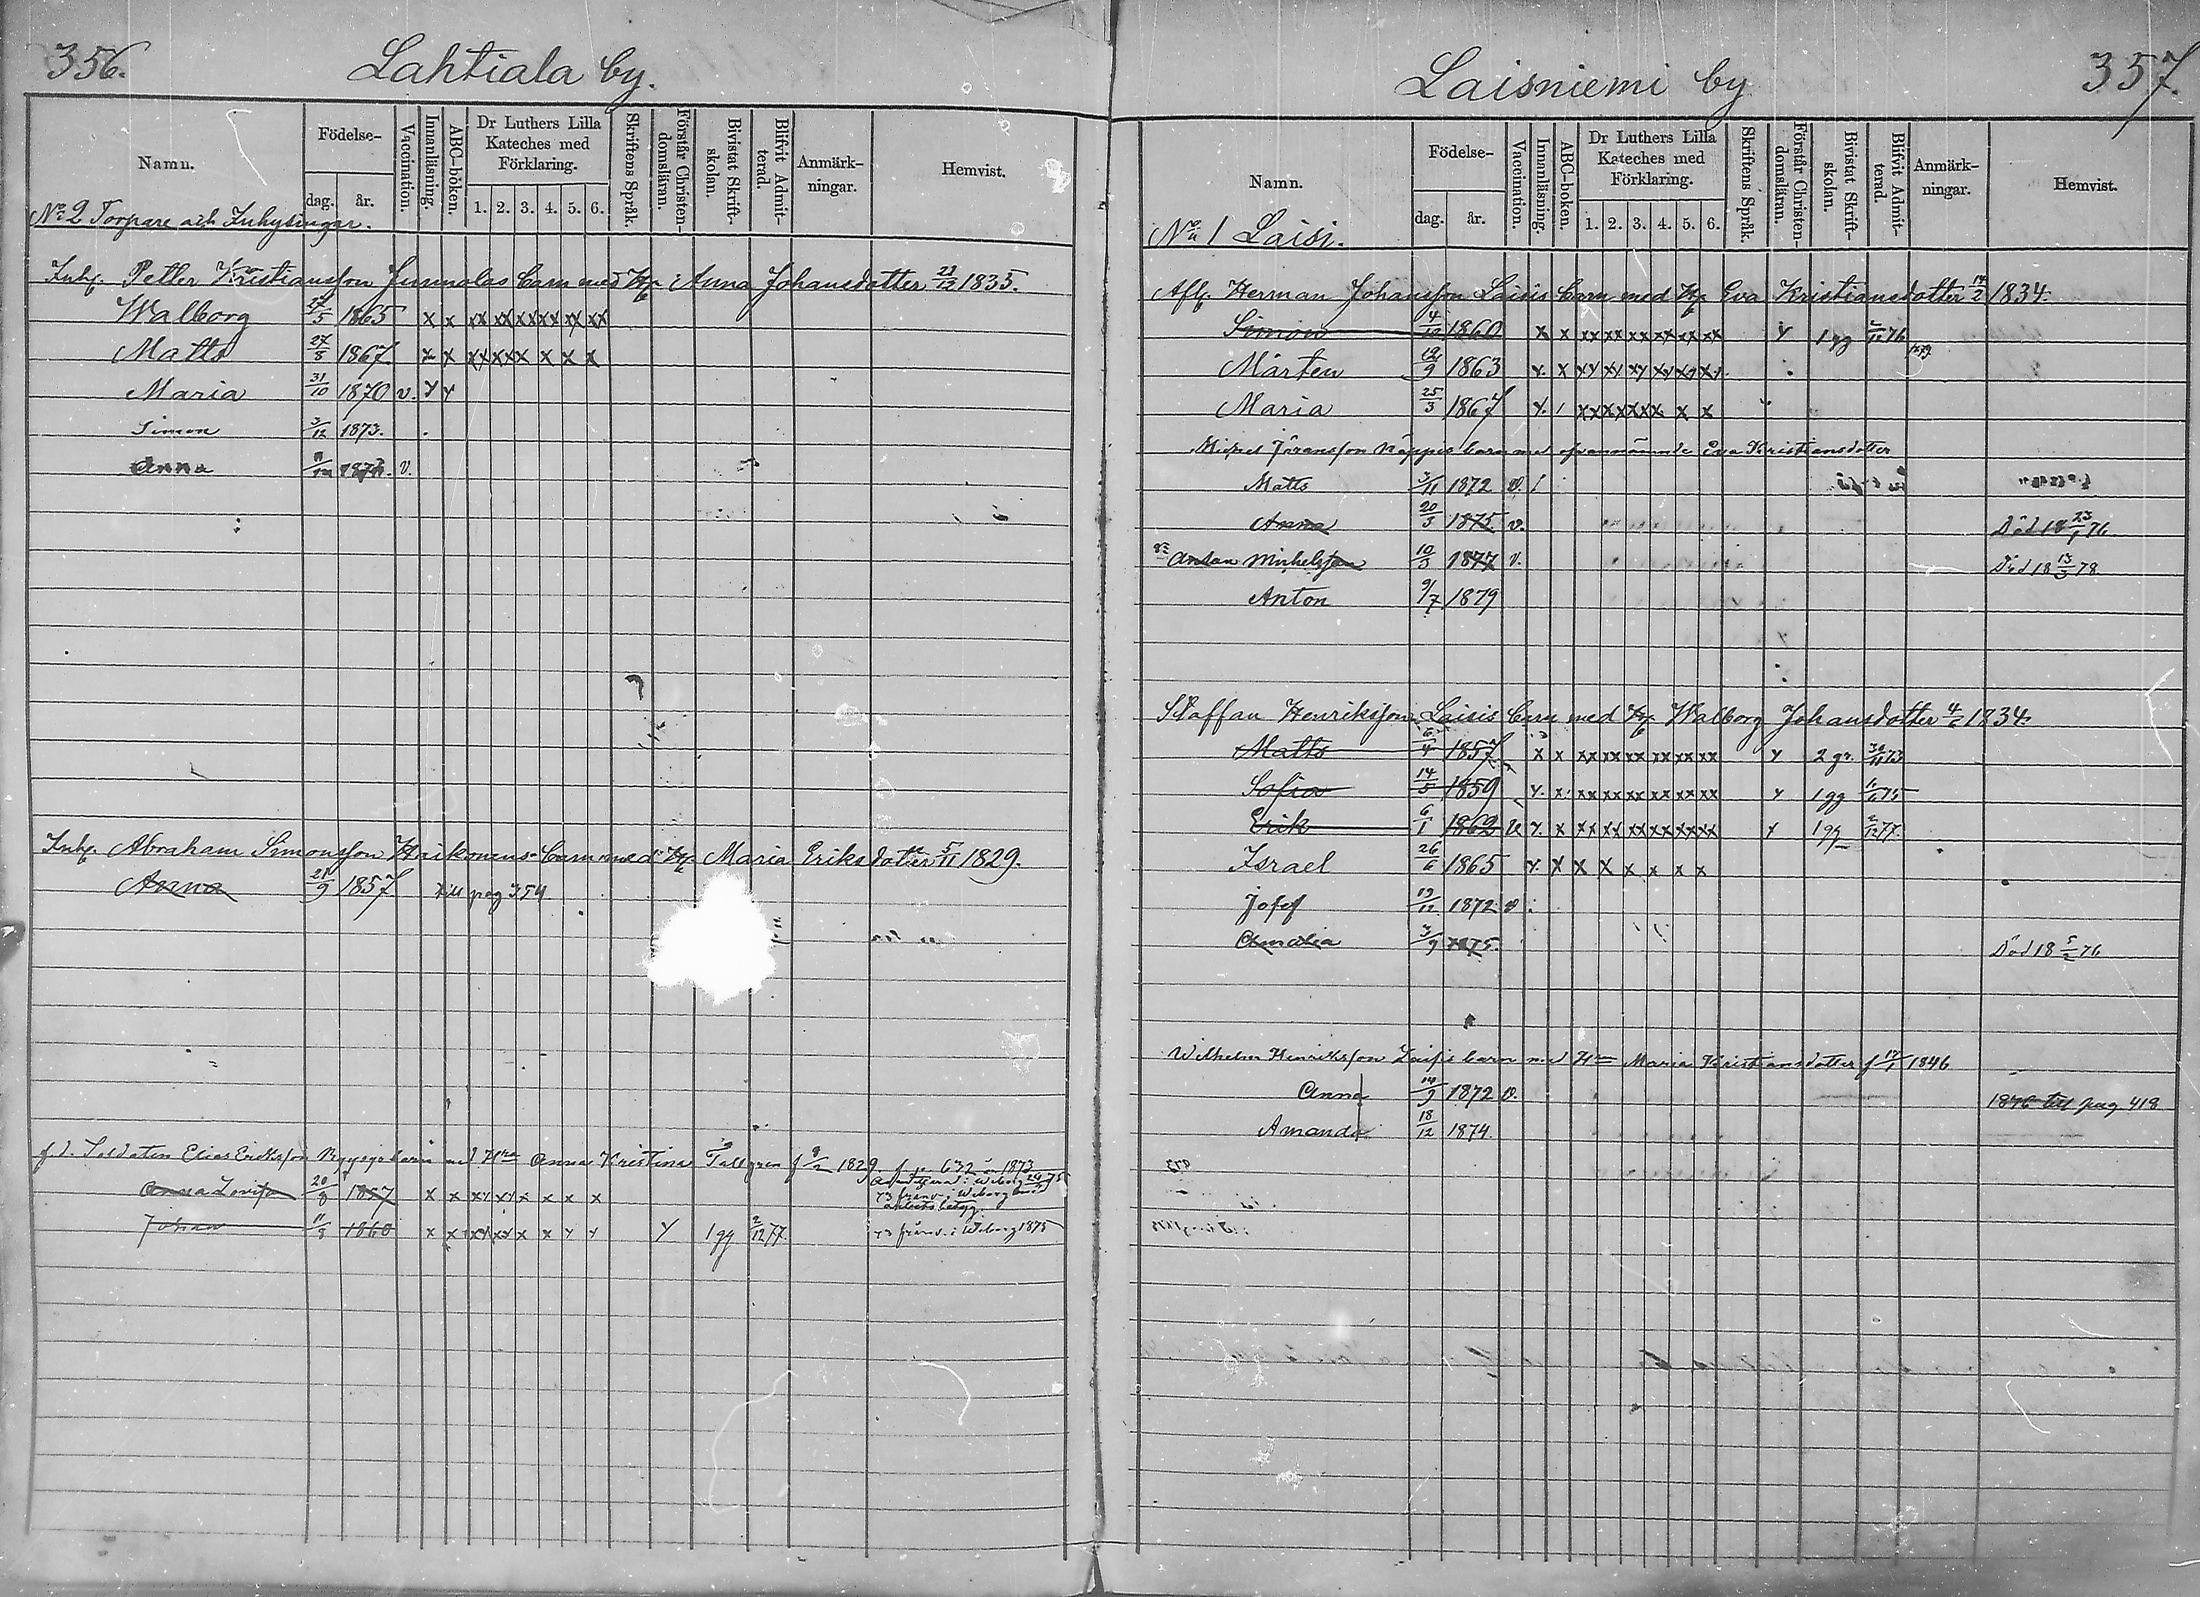 356.
Lahtiala by.
Namn. Födelse- dag. år. Vaccination. Innanläsning. ABC-boken. Dr Luthers Lilla Kateches med Förklaring. 1. 2. 3. 4. 5. 6. Skriftens Språk. Förstår Christendomsläran. Bivistat Skriftskolan. Blifvit Admitterad. Anmärkningar. Hemvist.
No 2 Torpare och Inhysingar.
Inh. Petter Kristiansson Junnolas barn med H. Anna Johansdotter 1835.
Walborg 27/5 1865 x x xx xx xx xx xx xx
Matts 27/8 1867 x x xx xx x x x x
Maria 31/10 1870 v.
Simon 3/12 1873.
Anna v.
Inh. Abraham Simonsson Haikonens barn med H. Maria Eriksdotter 5/11 1829.
Anna 21/9 1857 till pag 354
f.d. Soldaten Elias Eriksson barn med Anna Kristina Tallgren f 1829. 632 1873
Anna Lovisa 20/8 1857 x x xx xx x x x x
73 frånv. i Wiborg
Johan 11/9 1860 x x 1 gg 2/12 77. 73 frånv. i Wiborg 1875
357.
Laisniemi by
Namn. Födelse- dag. år. Vaccination. Innanläsning. ABC-boken. Dr Luthers Lilla Kateches med Förklaring. 1. 2. 3. 4. 5. 6. Skriftens Språk. Förstår Christendomsläran. Bivistat Skriftskolan. Blifvit Admitterad. Anmärkningar. Hemvist.
No 1 Laisi.
Afl. Herman Johansson Laisis barn med H. Eva Kristiansdotter 14/2 1834.
Simon 4/12 1860 x x xx xx xx xx xx xx 1 gg 76
Mårten 12/9 1863
Maria 25/3 1867
Michel Jöransson Näppis barn med ofvannämnde Eva Kristiansdotter
Matts 3/11 1872 v.
Anna 20/3 1875 v. Död 18 23/1 76
Michelsson 10/3 1877 v. Död 18 13/3 78
Anton 9/7 1879
Staffan Henriksson Laisis barn med H. Walborg Johansdotter 1834.
Matts 6/4 1857 x x xx xx xx xx xx xx 2 gr. 30/11 73
Sofia 14/5 1859 1 gg 75
Erik 6/1 1862 1 gg 2/12 77.
Israel 26/6 1865
Josef 19/12 1872 v
Amalia 3/9 1875. Död 18 5/2 76
Wilhelm Henriksson Laisis barn med Maria Kristiansdotter f 1846
Anna 1872 v. 1876 till pag 418
Amanda 18/12 1874.